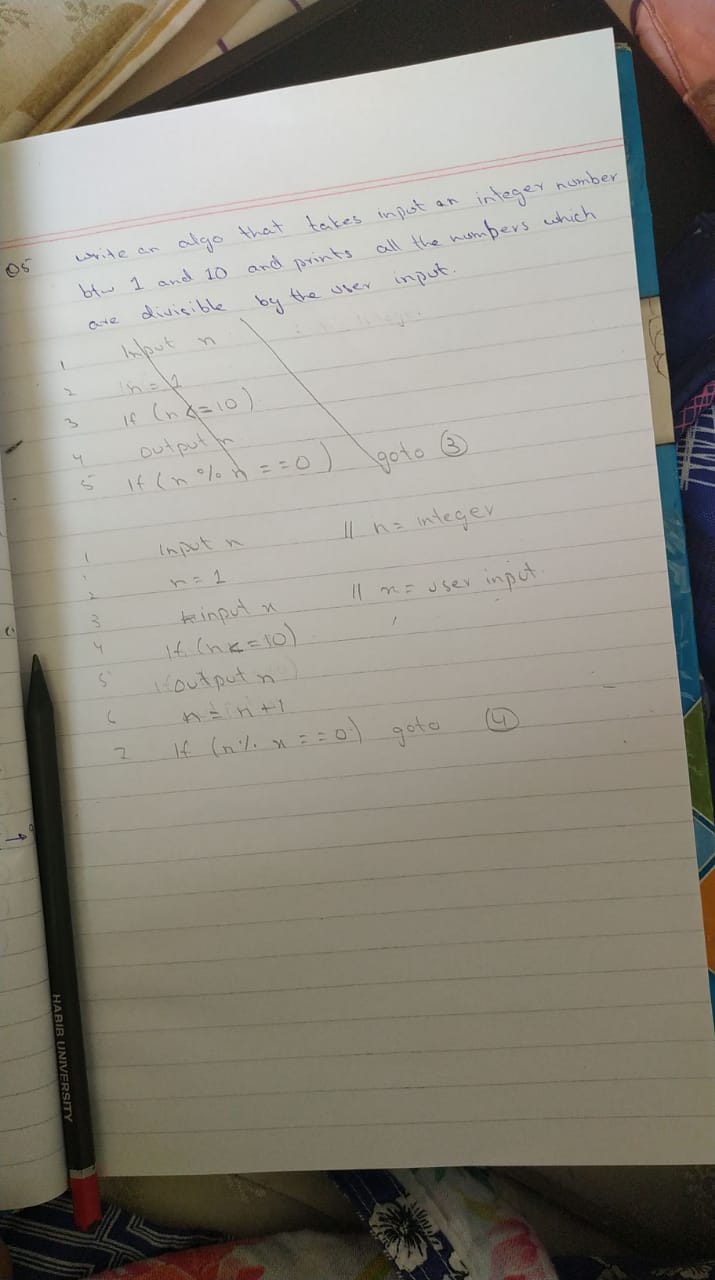 Q5 write an algo that takes input an integer number
btw 1 and 10 and prints all the numbers which
are divisible by the user input.
1 Input n
2 n = 1
3 If (n <= 10)
4 output n
5 If (n % n == 0) goto ③
1 Input n // n = integer
2 n = 1
3 input x // x = user input
4 If (n <= 10)
5 output n
6 n = n + 1
7 If (n % x == 0) goto ④
HABIB UNIVERSITY